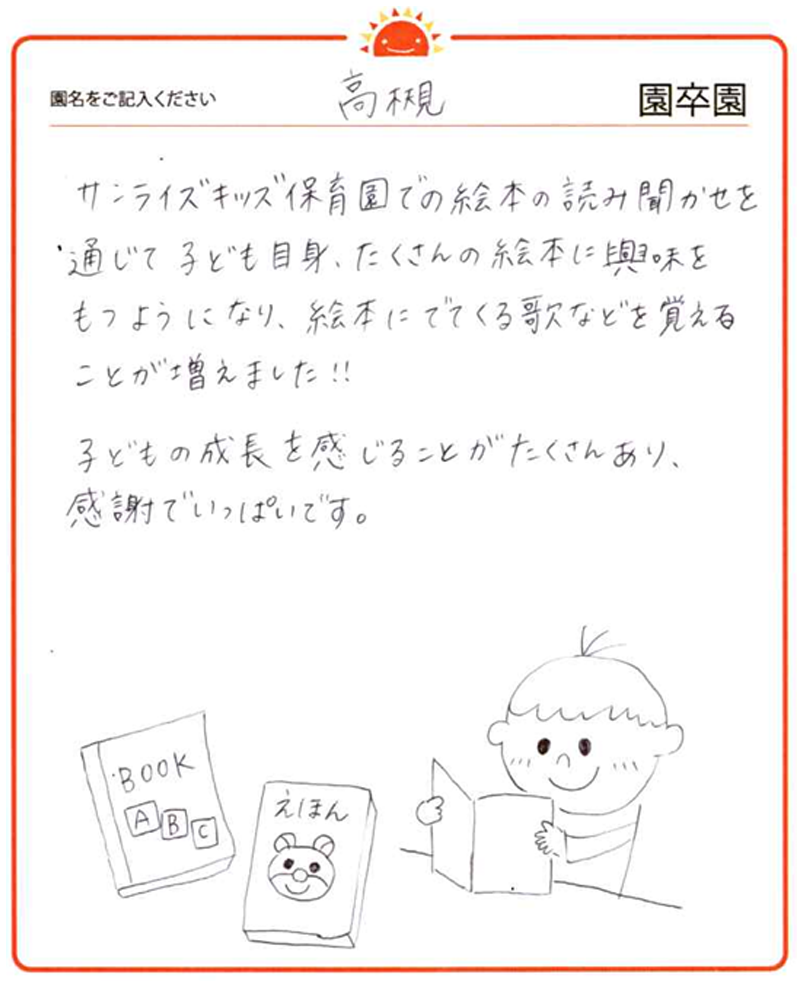 園名をご記入ください 高槻 園卒園
サンライズキッズ保育園での絵本の読み聞かせを
通じて子ども自身、たくさんの絵本に興味を
もつようになり、絵本にでてくる歌などを覚える
ことが増えました!!
子どもの成長を感じることがたくさんあり、
感謝でいっぱいです。
BOOK
A B C
えほん